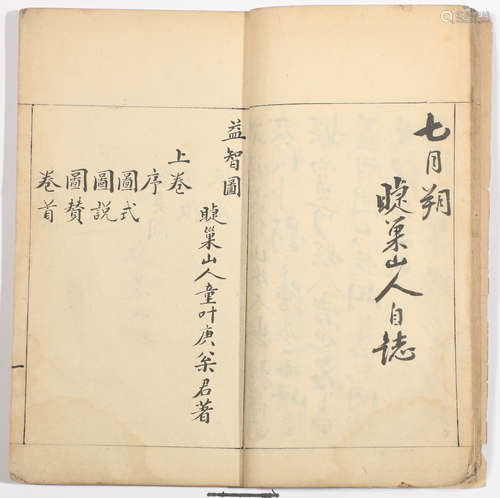 七月朔
睫巢山人自誌
益智圖
睫巢山人童叶庚叅君著
上卷
序
圖式
圖説
圖贊
卷首